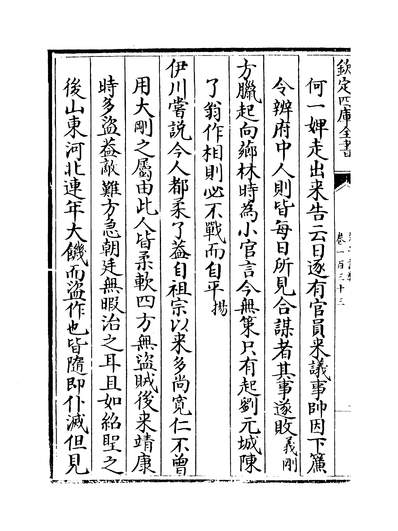 欽定四庫全書
卷一百三十三
何一婢走出来告云日逐有官員来議事帥因下簾
令辨府中人則皆每日所見合謀者其事遂敗義剛
方臘起向薌林時為小官言今無策只有起劉元城陳
了翁作相則必不戰而自平揚
伊川嘗説今人都柔了葢自祖宗以来多尚寛仁不曾
用大剛之屬由此人皆柔軟四方無盗賊後来靖康
時多盗葢敵難方急朝廷無暇治之耳且如紹聖之
後山東河北連年大饑而盗作也皆隨即仆滅但見